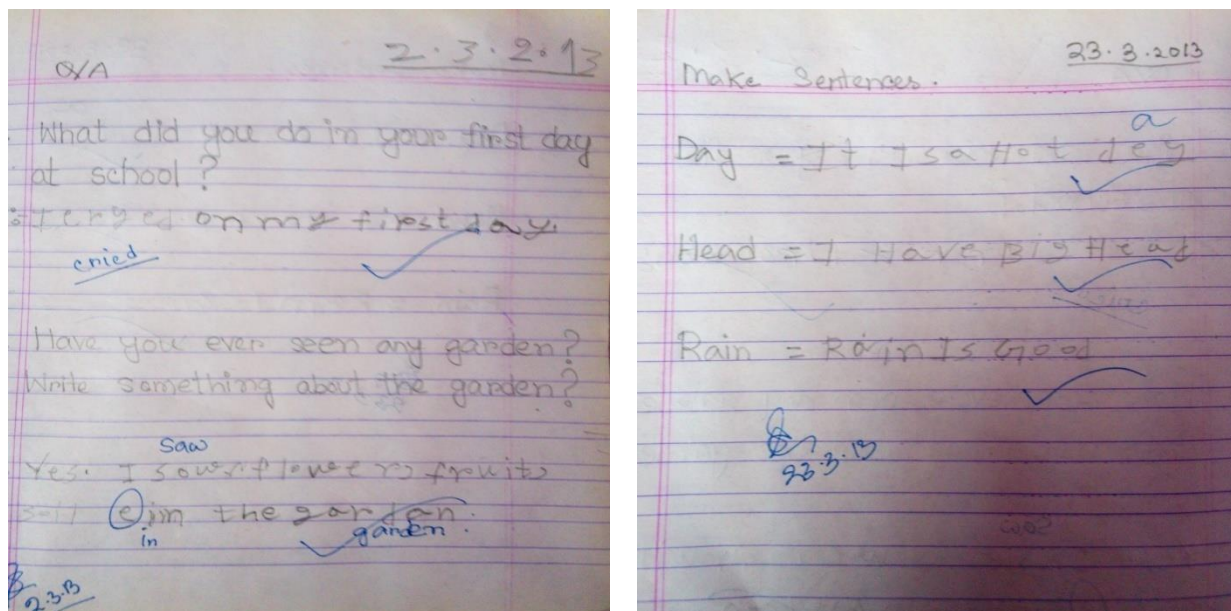 2.3.2.13
Q/A
What did you do in your first day
at school?
on my first day.
cried
Have you ever seen any garden?
Write something about the garden?
saw
Yes. I sow flowers fruits
e im the gardan.
in garden.
2.3.13
23.3.2013
Make Sentences.
a
Day = It Is a Hot dey
Head = I Have Big Head
Rain = Rain Is Good
23.3.13